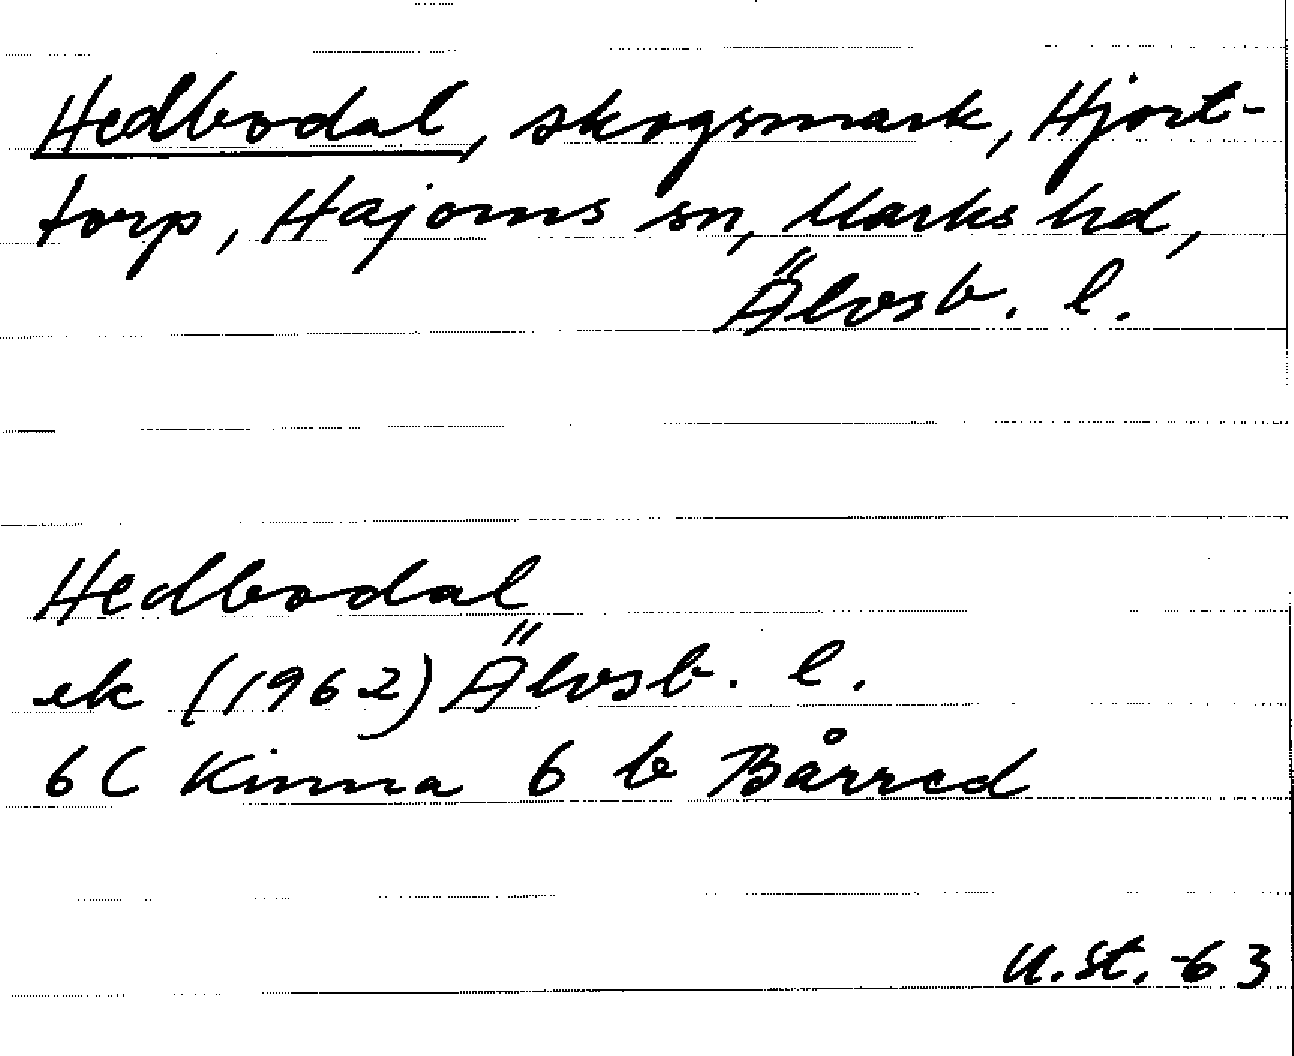 Hedbodal, skogsmark, Hjort-
torp, Hajoms sn, Marks hd,
Älvsb. l.
Hedbodal
ek (1962) Älvsb. l.
6C Kinna 6 b Bårred
U.St. -63